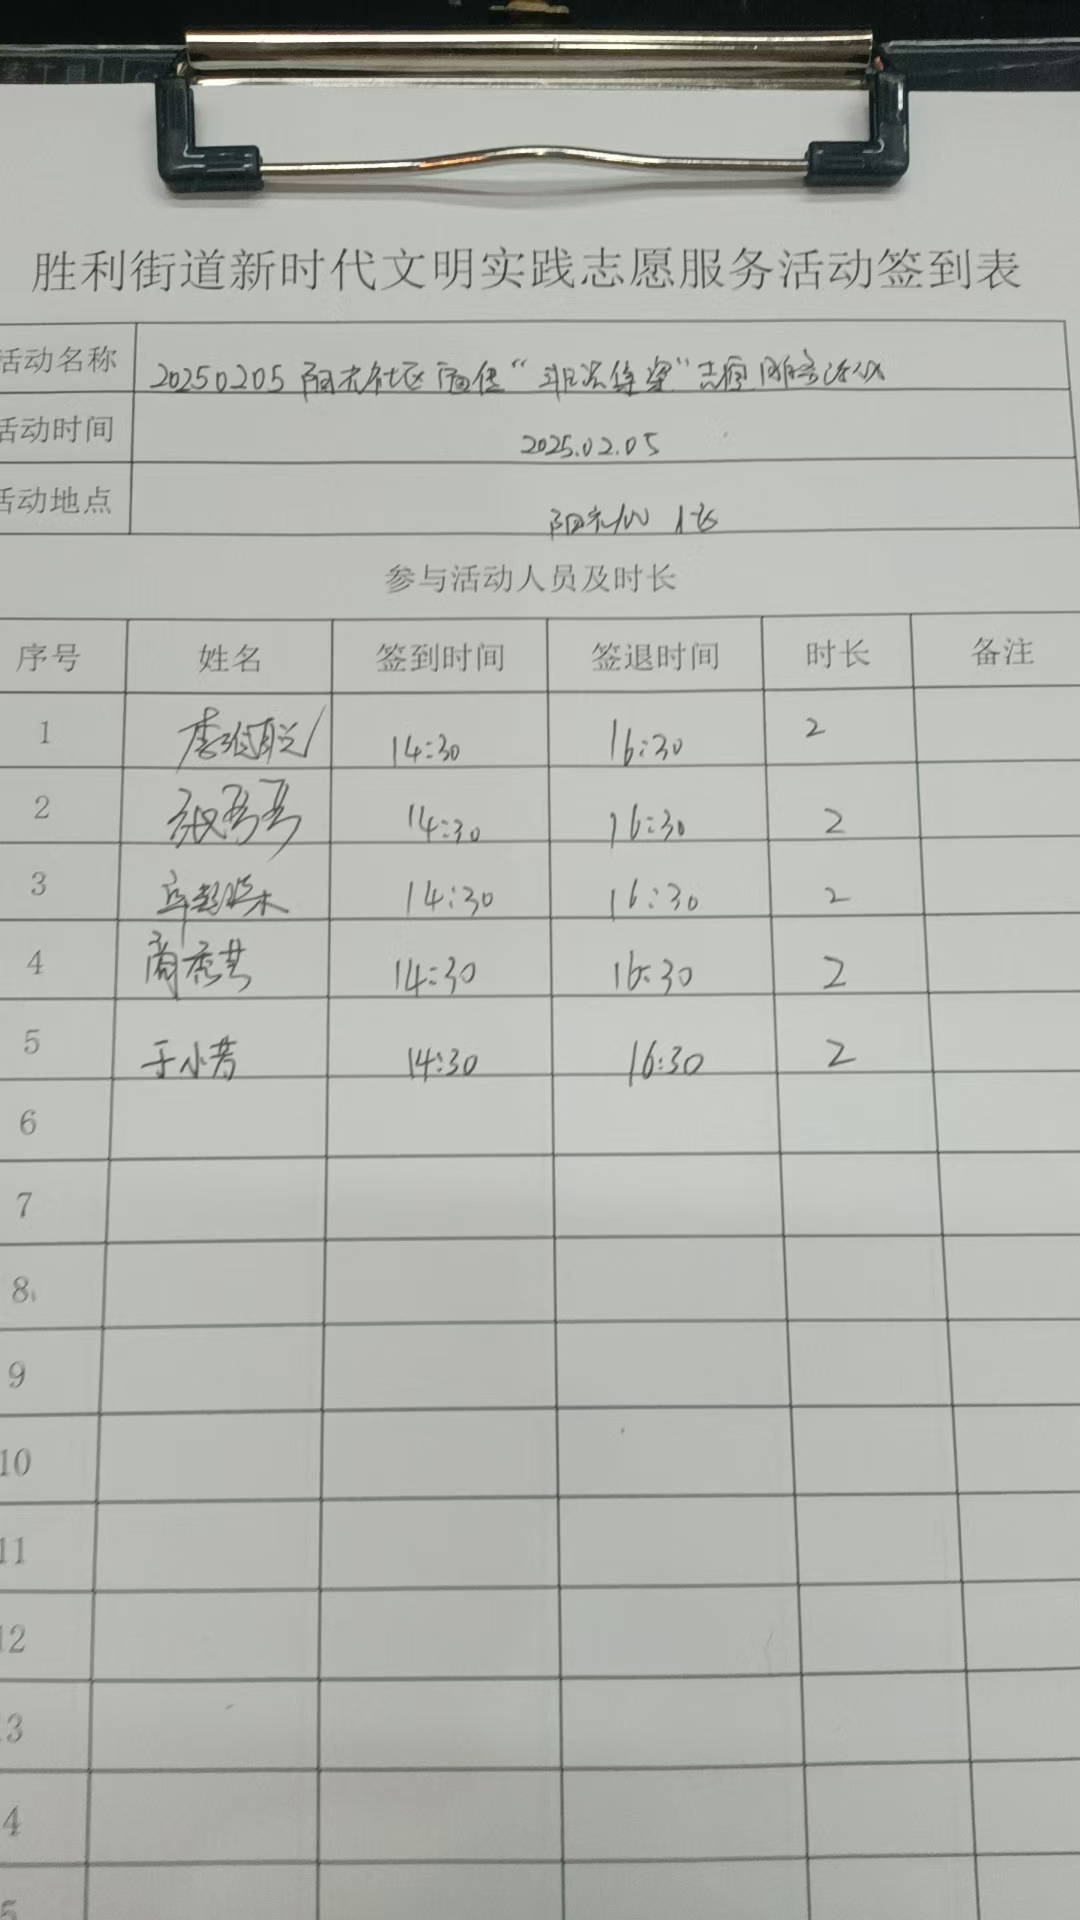 胜利街道新时代文明实践志愿服务活动签到表
活动名称 20250205阳光社区宣传“非法集资”志愿服务活动
活动时间 2025.02.05
活动地点 阳光100
参与活动人员及时长
序号 姓名 签到时间 签退时间 时长 备注
1 14:30 16:30 2
2 14:30 16:30 2
3 14:30 16:30 2
4 14:30 16:30 2
5 于小芳 14:30 16:30 2
6
7
8
9
10
11
12
3
4
5